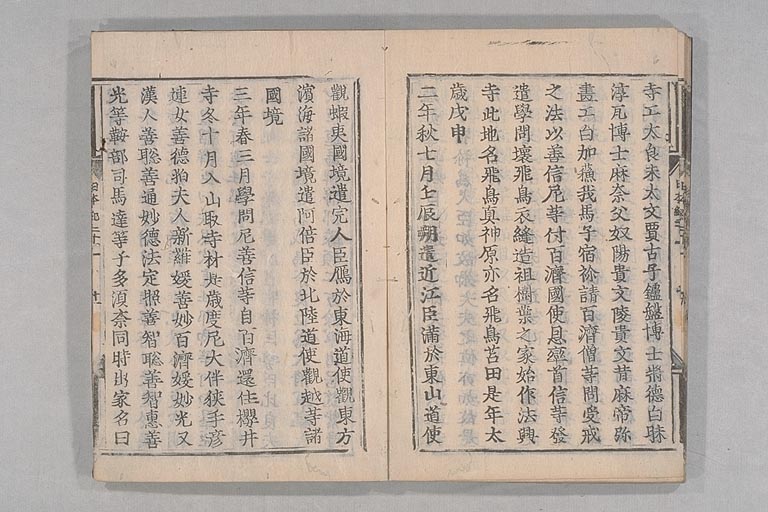 寺工太良未太文賈古子鑪盤博士將德白昧
淳瓦博士麻奈父奴陽貴文陵貴文昔麻帝弥
畫工白加蘓我馬子宿祢請百濟僧等問受戒
之法以善信尼等付百濟國使恩率首信等發
遣學問壞飛鳥衣縫造祖樹葉之家始作法興
寺此地名飛鳥真神原亦名飛鳥苫田是年太
歲戊申
二年秋七月壬辰朔遣近江臣滿於東山道使
觀蝦夷國境遣宍人臣鴈於東海道使觀東方
濱海諸國境遣阿倍臣於北陸道使觀越等諸
國境
三年春三月學問尼善信等自百濟還住櫻井
寺冬十月入山取寺材是歲度尼大伴狹手彥
連女善德狛夫人新羅媛善妙百濟媛妙光又
漢人善聡善通妙德法定照善智聡善智惠善
光等鞍部司馬達等子多湏奈同時出家名曰